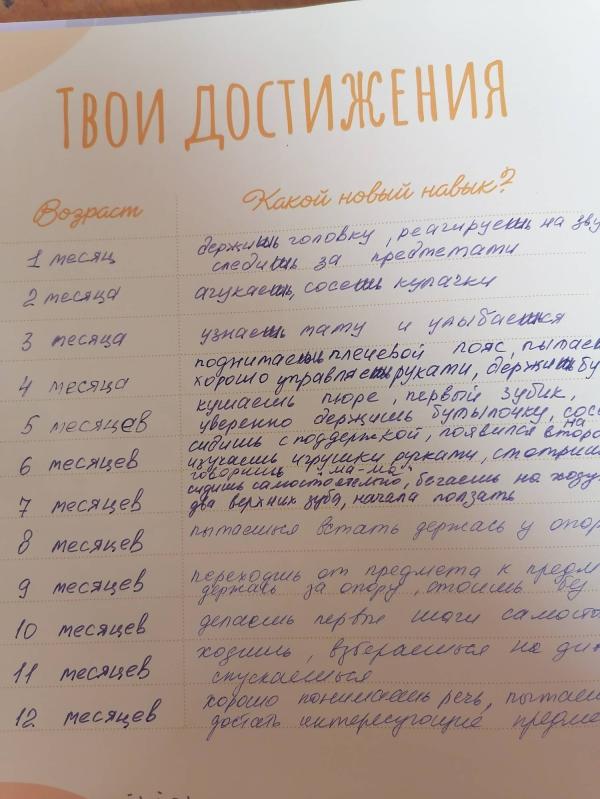 ТВОИ ДОСТИЖЕНИЯ
Возраст Какой новый навык?
1 месяц держишь головку, реагируешь на зву
следишь за предметами
2 месяца агукаешь, сосешь кулачки
3 месяца узнаешь маму и улыбаешься
поднимаешь плечевой пояс, пытаеш
4 месяца хорошо управляешь руками, держишь бу
кушаешь пюре, первый зубик,
5 месяцев уверенно держишь бутылочку, сос
сидишь с поддержкой, появился второ
6 месяцев изучаешь игрушки ручками, смотриш на
говоришь "ма-ма"
сидишь самостоятельно, бегаешь на ходу
7 месяцев два верхних зуба, начала ползать
8 месяцев пытаешься встать держась у опор
9 месяцев переходишь от предмета к предм
держась за опору, стоишь без
10 месяцев делаешь первые шаги самосто
11 месяцев ходишь, взбераешься на ди
спускаешься
12 месяцев хорошо понимаешь речь, пытаеш
достать интересующие предме